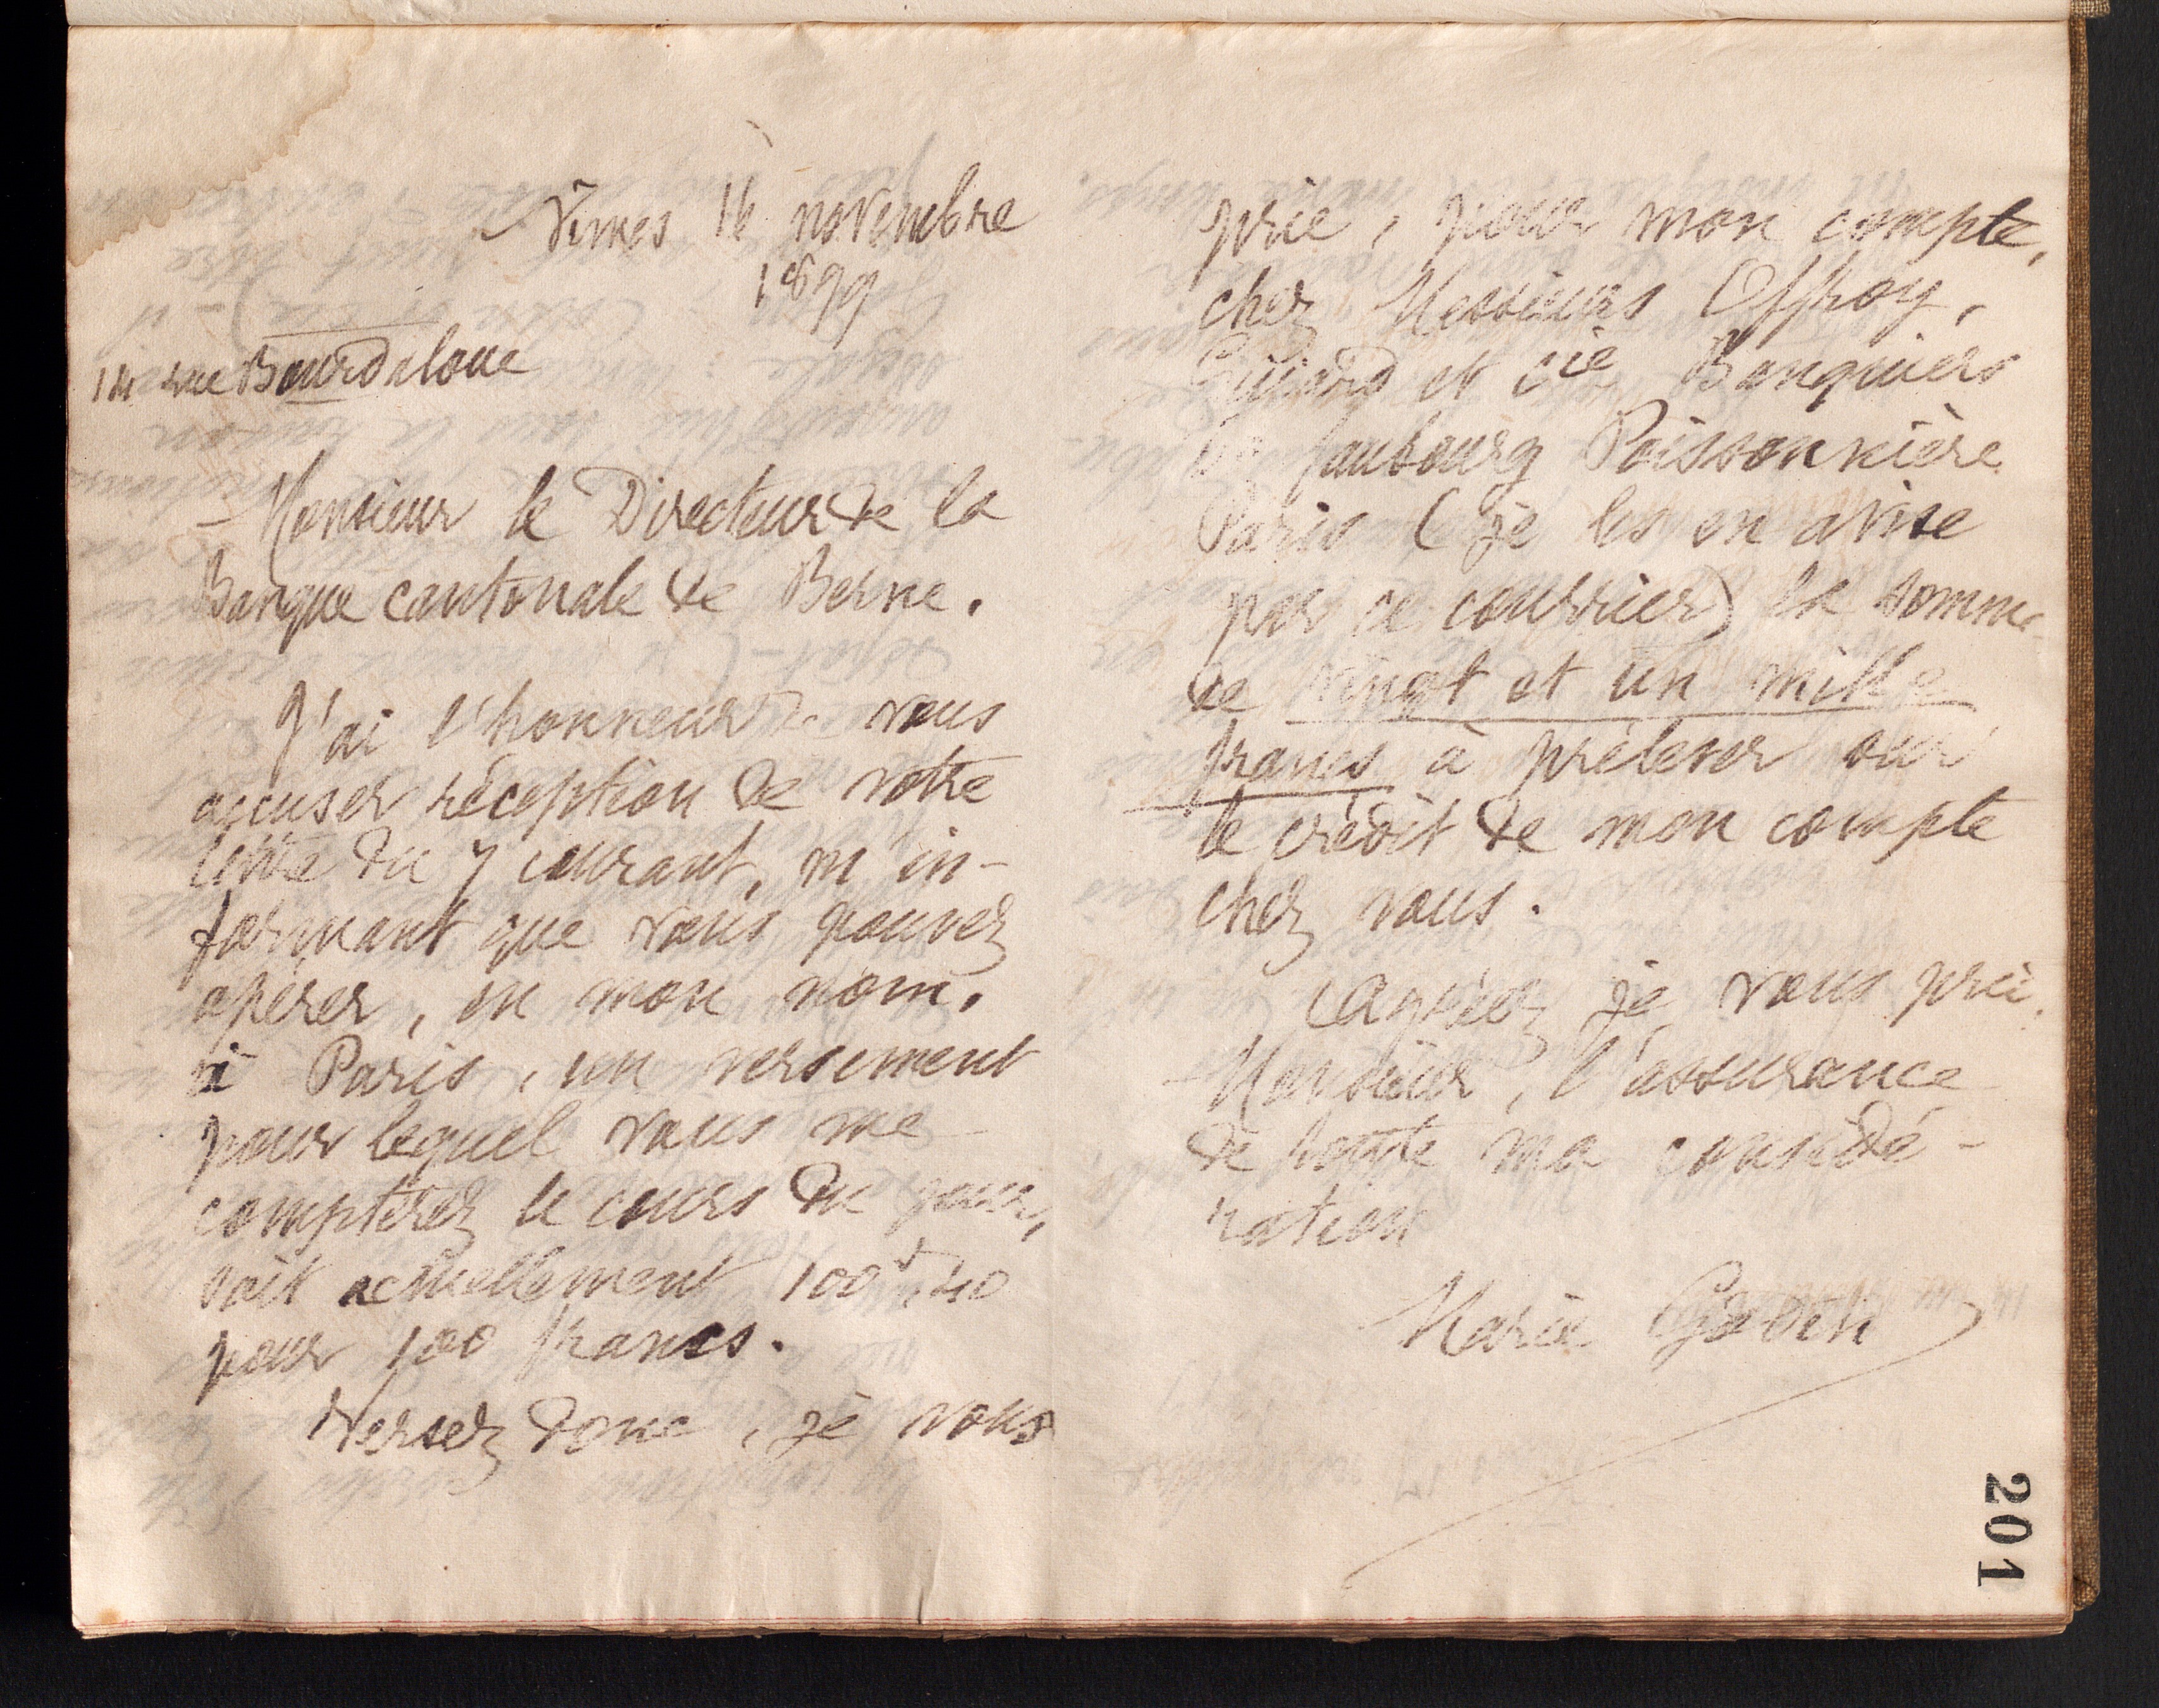 Nimes 16 novembre
1899
14 rue Bourdaloue
Monsieur le Directeur de la
Banque cantonale de Berne.
J'ai l'honneur de vous
accuser réception de votre
lettre du 7 courant, m'in-
formant que vous pouvez
opérer, en mon nom,
à Paris, un versement
pour lequel vous me
compterez le cours du jour,
soit actuellement 100f,40
pour 100 francs.
Versez donc, je vous
prie, pour mon compte,
chez Messieurs Offroy,
Guiard et Cie Banquiers
faubourg Poissonnière
Paris (je les en avise
par ce courrier) la somme
de vingt et un mille
francs à prélever sur
le crédit de mon compte
chez vous.
Agréez je vous prie,
Monsieur, l'assurance
de toute ma considé-
ration
Marie Godin
201